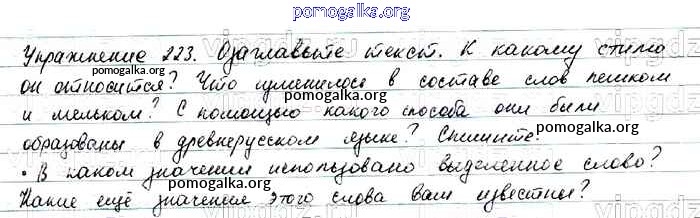 pomogalka.org
Упражнение 223. Озаглавьте текст. К какому стилю
он относится? Что изменилось в составе слов пешком
и мельком? С помощью какого способа они были
образованы в древнерусском языке? Спишите.
• В каком значении использовано выделенное слово?
Какие ещё значения этого слова вам известны?